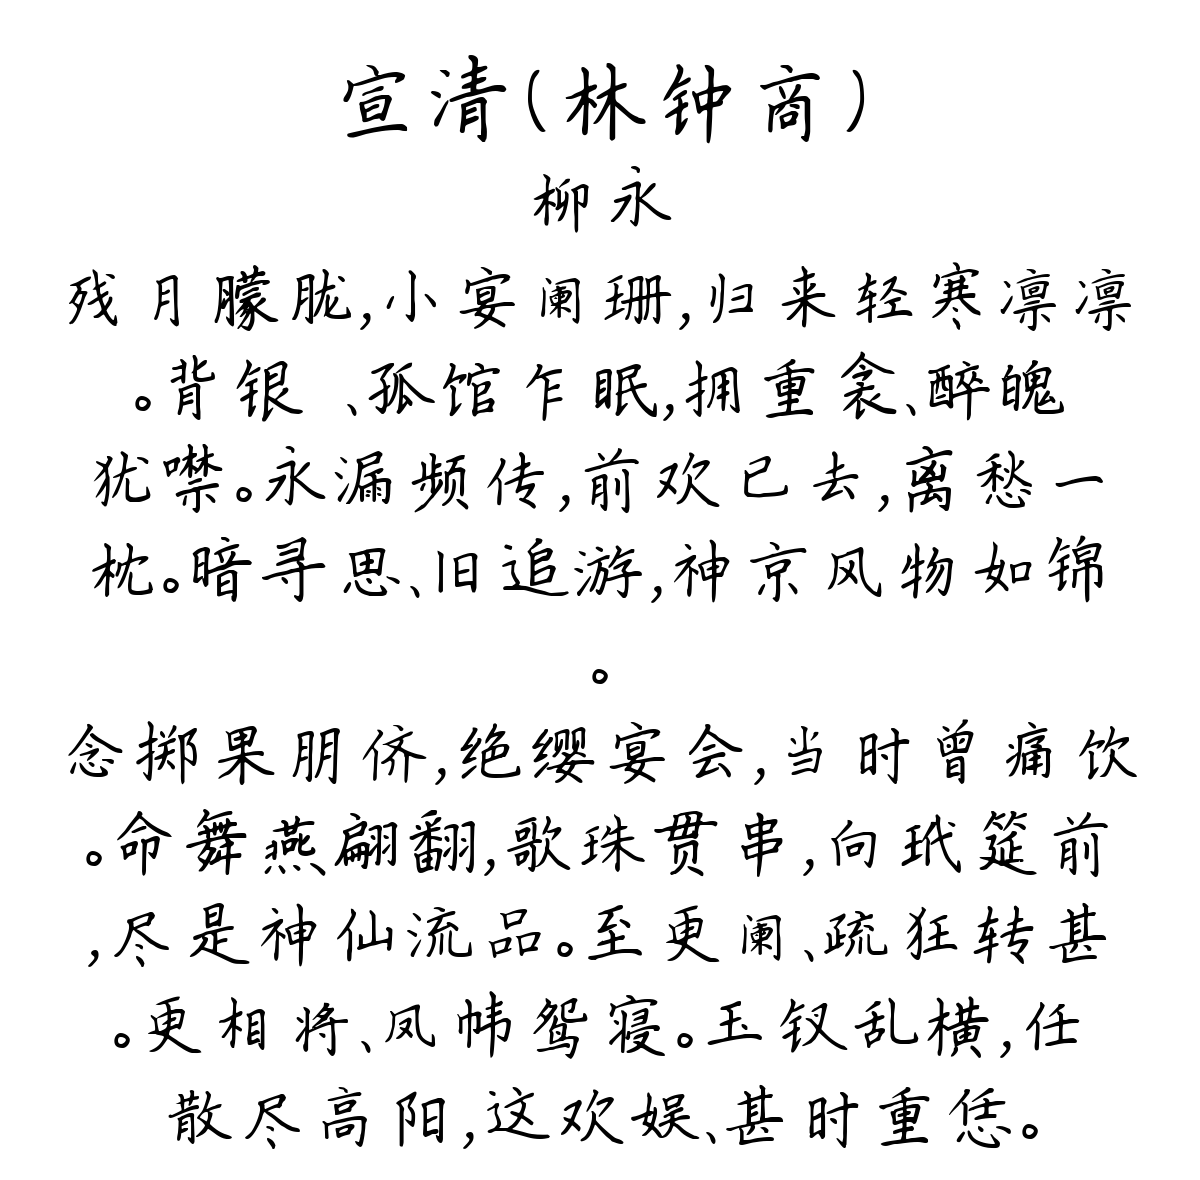 宣清(林钟商)
柳永
残月朦胧,小宴阑珊,归来轻寒凛凛
。背银 、孤馆乍眠,拥重衾、醉魄
犹噤。永漏频传,前欢已去,离愁一
枕。暗寻思、旧追游,神京风物如锦
。
念掷果朋侪,绝缨宴会,当时曾痛饮
。命舞燕翩翻,歌珠贯串,向玳筵前
,尽是神仙流品。至更阑、疏狂转甚
。更相将、凤帏鸳寝。玉钗乱横,任
散尽高阳,这欢娱、甚时重恁。